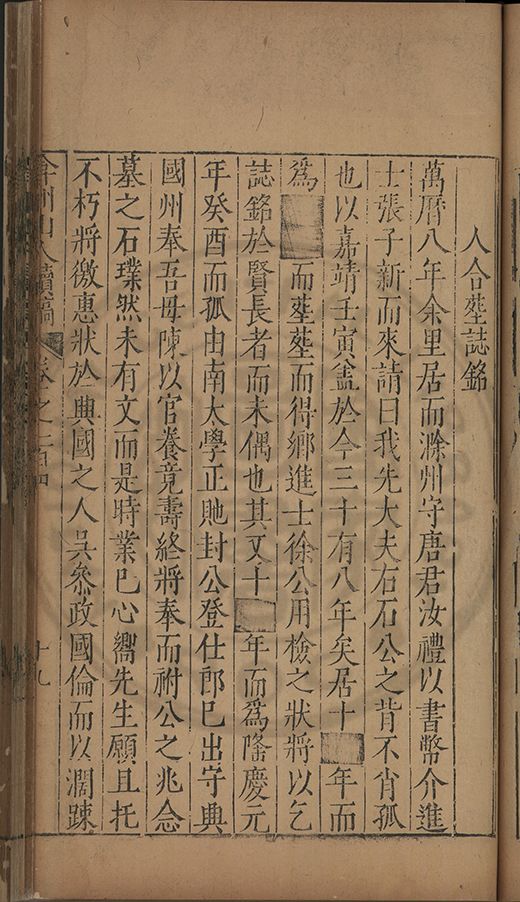 人合塟誌銘
萬曆八年余里居而滁州守唐君汝禮以書幣介進
士張子新而來請曰我先大夫右石公之背不肖孤
也以嘉靖壬寅盖於今三十有八年矣居十年而
爲而塟塟而得鄉進士徐公用檢之狀將以乞
誌銘於賢長者而未偶也其又十年而爲隆慶元
年癸酉而孤由南太學正貤封公登仕郎巳出守興
國州奉吾母陳以官養竟壽終將奉而祔公之兆念
墓之石璞然未有文而是時業巳心嚮先生願且托
不朽將徼惠狀於興國之人吳叅政國倫而以濶踈
弇州山人續稿 卷之一百四 十九